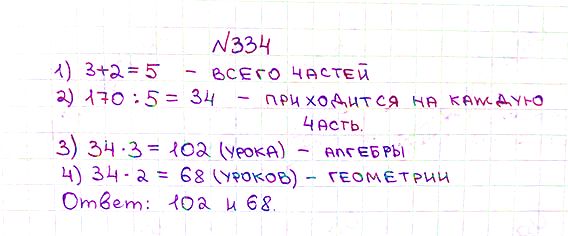 №334
1) 3+2=5 – ВСЕГО ЧАСТЕЙ
2) 170:5=34 – ПРИХОДИТСЯ НА КАЖДУЮ
ЧАСТЬ.
3) 34·3=102 (УРОКА) – АЛГЕБРЫ
4) 34·2=68 (УРОКОВ) – ГЕОМЕТРИИ
Ответ: 102 и 68.